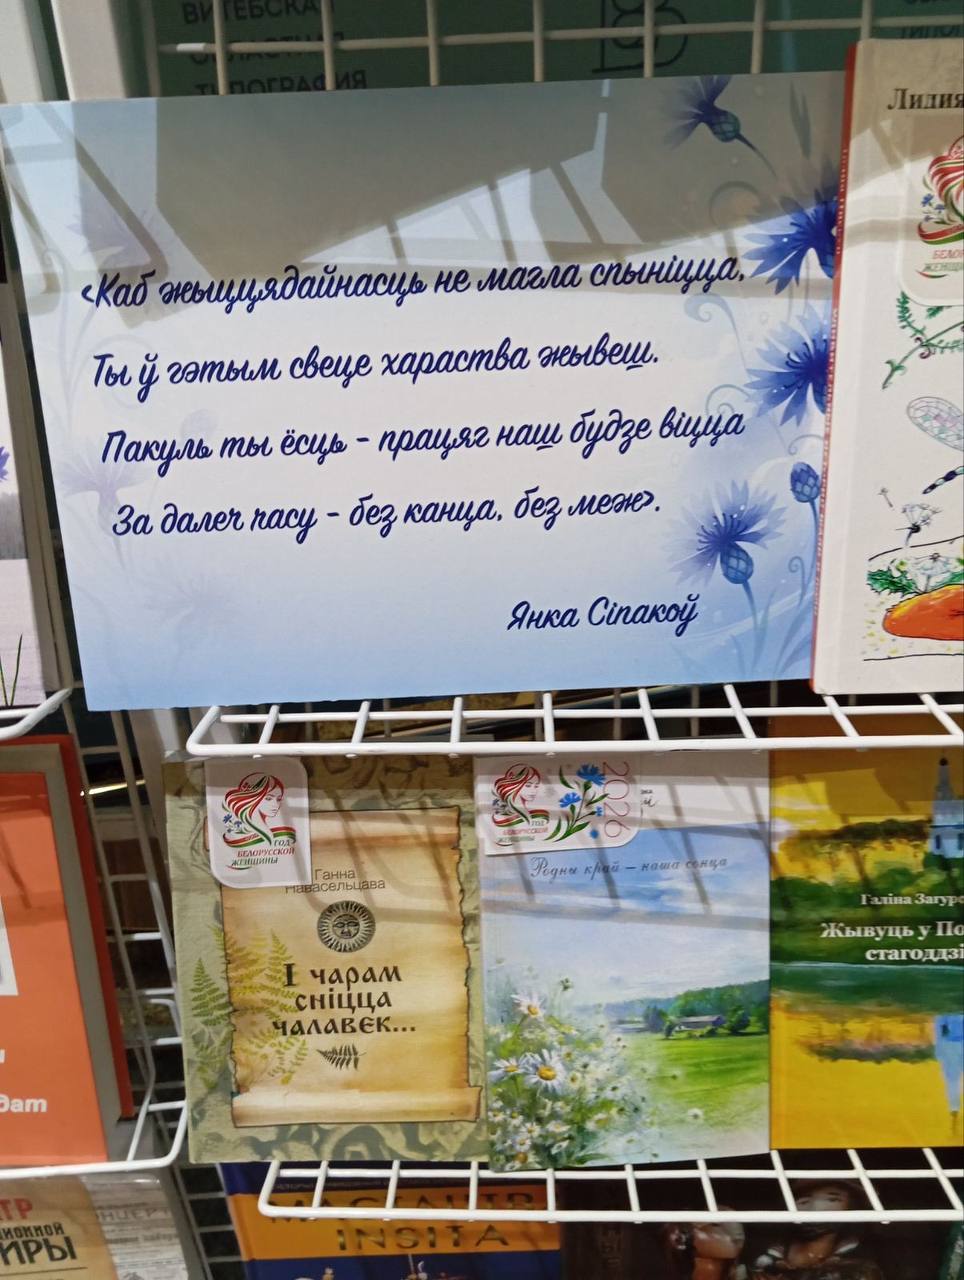 ВИТЕБСКАЯ
ОБЛАСТНАЯ
ТИПОГРАФИЯ
«Каб жыццядайнасць не магла спыніцца,
Ты ў гэтым свеце хараства жывеш.
Пакуль ты ёсць - працяг наш будзе віцца
За далеч часу - без канца, без меж».
Янка Сіпакоў
Лидия
ГОД
БЕЛОРУССКОЙ
ЖЕНЩИНЫ
Ганна
Навасельцава
І чарам
сніцца
чалавек...
2026
ГОД
БЕЛОРУССКОЙ
ЖЕНЩИНЫ
Родны край – наша сонца
Галіна Загурс
Жывуць у По
стагоддзі
дат
INSITA